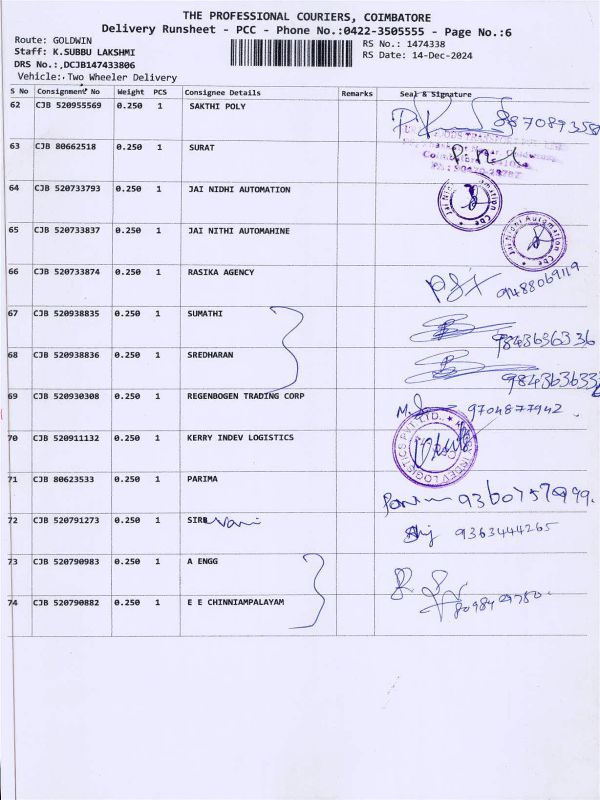 THE PROFESSIONAL COURIERS, COIMBATORE
Delivery Runsheet - PCC - Phone No.:0422-3505555 - Page No.:6
Route: GOLDWIN
RS No.: 1474338
Staff: K.SUBBU LAKSHMI
RS Date: 14-Dec-2024
DRS No.:,DCJB147433806
Vehicle:.Two Wheeler Delivery
S No Consignment No Weight PCS Consignee Details Remarks Seal & Signature
62 CJB 520955569 0.250 1 SAKTHI POLY
63 CJB 80662518 0.250 1 SURAT
64 CJB 520733793 0.250 1 JAI NIDHI AUTOMATION Jai Nidhi Automation Cbe
65 CJB 520733837 0.250 1 JAI NITHI AUTOMAHINE Jai Nidhi Automation Cbe
66 CJB 520733874 0.250 1 RASIKA AGENCY 9488069119
67 CJB 520938835 0.250 1 SUMATHI 9843636336
68 CJB 520938836 0.250 1 SREDHARAN
69 CJB 520930308 0.250 1 REGENBOGEN TRADING CORP 9704877942
70 CJB 520911132 0.250 1 KERRY INDEV LOGISTICS
71 CJB 80623533 0.250 1 PARIMA
72 CJB 520791273 0.250 1 SIRU Vani 9363444265
73 CJB 520790983 0.250 1 A ENGG
74 CJB 520790882 0.250 1 E E CHINNIAMPALAYAM